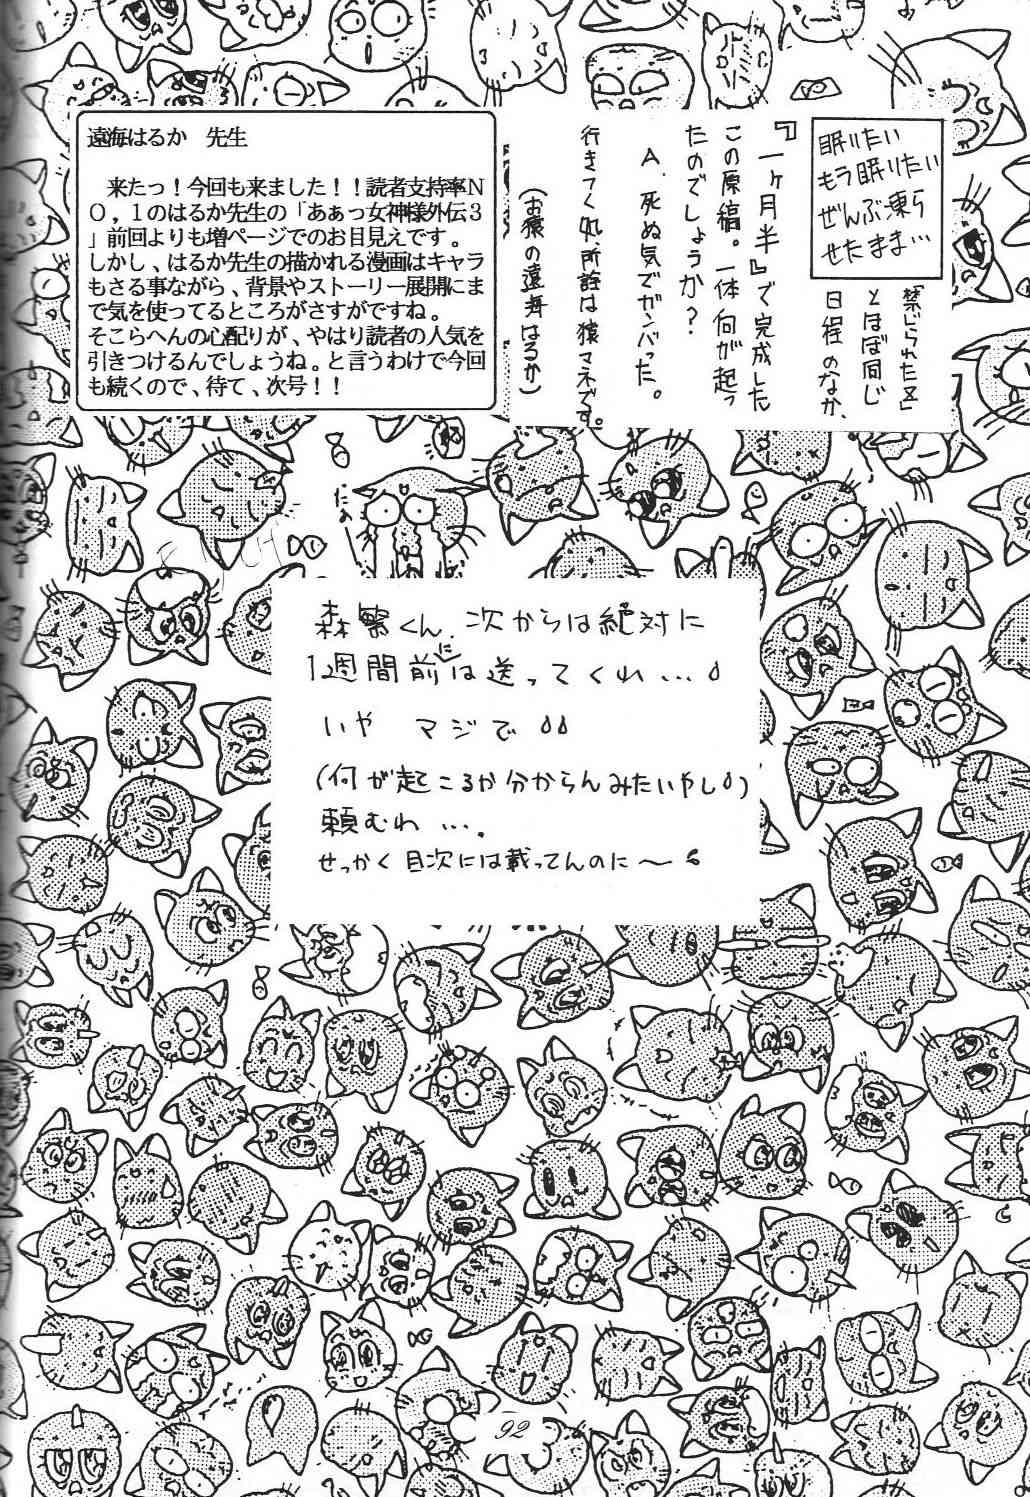 遠海はるか　先生
　来たっ！今回も来ました！！読者支持率NO，1のはるか先生の「あぁっ女神様外伝3
」前回よりも増ページでのお目見えです。
しかし、はるか先生の描かれる漫画はキャラ
もさる事ながら、背景やストーリー展開にま
で気を使ってるところがさすがですね。
そこらへんの心配りが、やはり読者の人気を
引きつけるんでしょうね。と言うわけで今回
も続くので、待て、次号！！
眠りたい
もう眠りたい
ぜんぶ凍ら
せたまま…
「禁じられた」
とほぼ同じ
日程のなか、
『一ヶ月半』で完成した
この原稿。一体何が起っ
たのでしょうか？
A．死ぬ気でガンバった。
（お猿の遠海はるか）
行きつく処所詮は猿マネです。
森繁くん、次からは絶対に
1週間前には送ってくれ…
いや　マジで
（何が起こるか分からんみたいやし）
頼むわ…。
せっかく目次には載ってんのに〜
92